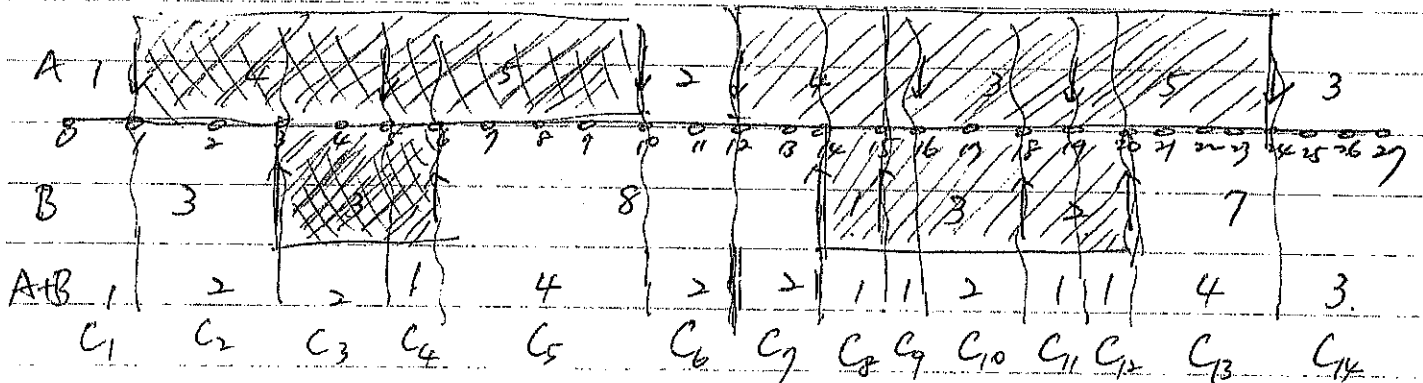 A 1 4 5 2 4 3 5 3
0 1 2 3 4 5 6 7 8 9 10 11 12 13 14 15 16 17 18 19 20 21 22 23 24 25 26 27
B 3 3 8 1 3 2 7
A+B 1 2 2 1 4 2 2 1 1 2 1 1 4 3
C1 C2 C3 C4 C5 C6 C7 C8 C9 C10 C11 C12 C13 C14